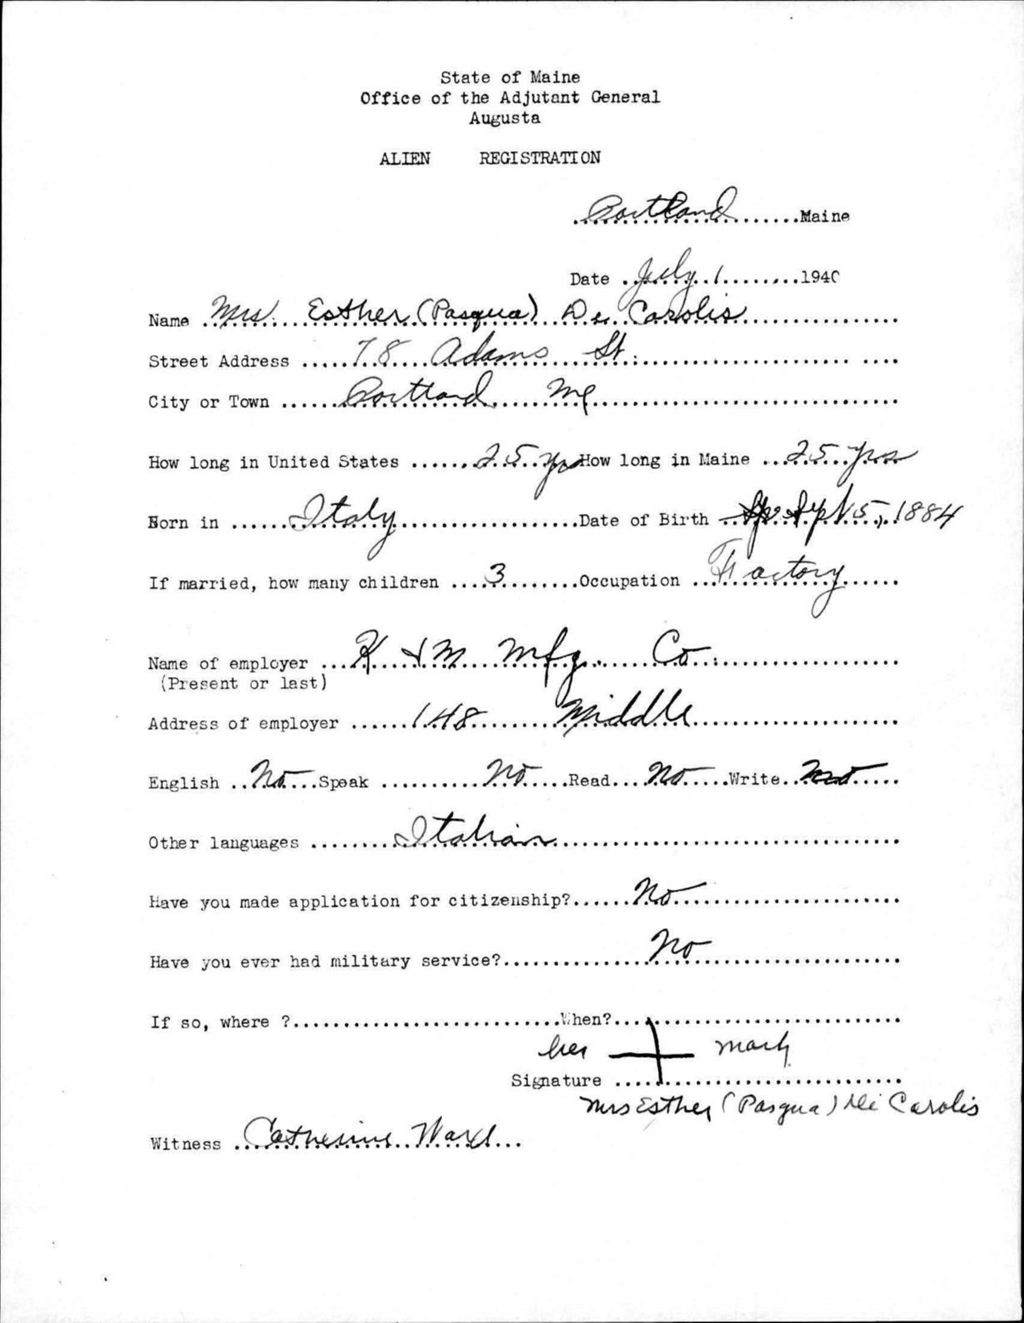 State of Maine
Office of the Adjutant General
Augusta
ALIEN REGISTRATION
Portland Maine
Date July 1 1940
Name Mrs. Esther (Pasqua) De Carolis
Street Address 78 Adams St.
City or Town Portland Me
How long in United States 25 yrs How long in Maine 25 yrs
Born in Italy Date of Birth Sept 5, 1884
If married, how many children 3 Occupation Factory
Name of employer K & M Mfg. Co.
(Present or last)
Address of employer 148 Middle
English No Speak No Read No Write No
Other languages Italian
Have you made application for citizenship? No
Have you ever had military service? No
If so, where ? When?
her + mark
Signature
Mrs Esther (Pasqua) De Carolis
Witness Catherine